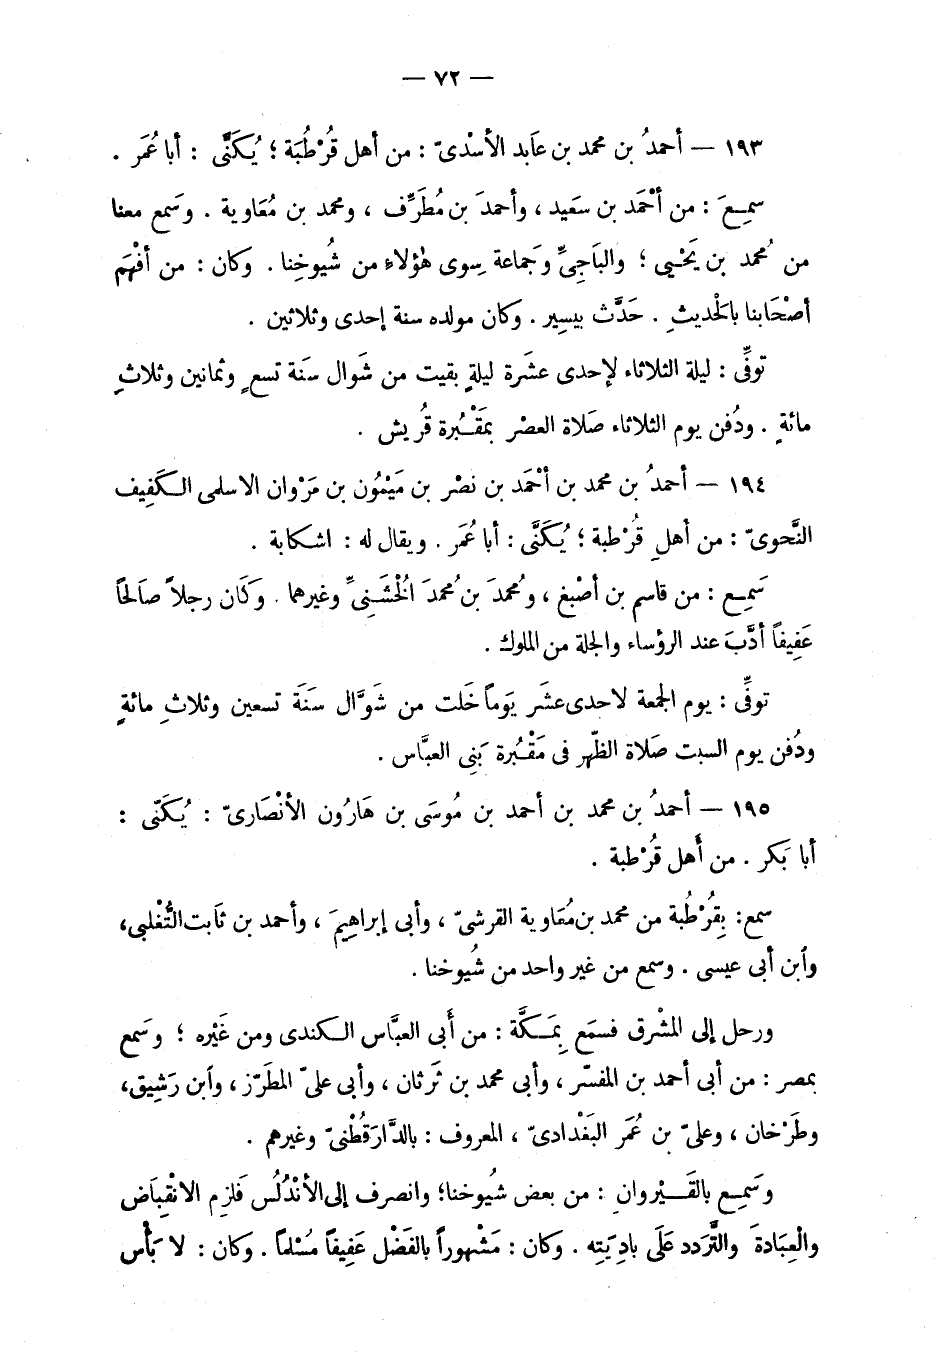 — ٧٢ —
١٩٣ — أحمدُ بن محمد بن عاَبد الأسْدىّ : من أهل قُرْطُبَة ؛ يُكَنَّى : أبا عُمَر .
سمِعَ : من أحْمَد بن سَعيد ، وأحمدَ بن مُطَرِّف ، ومحمد بن مُعَاوية . وسَمع معنا
من مُحمد بن يَحْيى ؛ والبَاجِىِّ وجَماعة سِوى هٰؤلاءِ من شُيوخِنا . وكان : من أفْهَم
أصْحَابنا بالحَديثِ . حَدَّث بيسِير . وكان مولده سنة إحدى وثلاثين .
توفِّى : ليلة الثلاثاء لإحدى عشَرة ليلةٍ بقيت من شَوال سنَة تسعٍ وثمانين وثلاثِ
مائةٍ . ودُفن يوم الثلاثاء صَلاة العصْر بمَقْبُرة قُريش .
١٩٤ — أحمدُ بن محمد بن أحْمَد بن نصْر بن مَيْمُون بن مَرْوان الاسلمى الكَفِيف
النَّحوىّ : من أهلِ قُرْطبة ؛ يُكَنَّى : أبا عُمَر . ويقال له : اشكابة .
سَمِع : من قاسم بن أصْبغ ، ومُحمدَ بن مُحمدَ الخُشَنِىِّ وغيرهما . وكَان رجلاً صَالحاً
عَفِيفاً أدَّبَ عند الرؤساء والجلة من الملوك .
توفِّى : يوم الجمعة لاحدى عشَر يَوماً خَلت من شَوَّال سنَة تسعين وثلاثِ مائةٍ
ودُفن يوم السبت صَلاة الظّهر فى مَقْبُرة بَنِى العبَّاس .
١٩٥ — أحمدُ بن محمد بن أحمد بن مُوسَى بن هَارُون الأنْصَارىّ : يُكَنّى :
أبا بَكر . من أَهل قُرْطبة .
سمع: بِقُرْطُبة من محمد بن مُعَاوية القرشىّ ، وأبى إبراهِيمَ ، وأحمد بن ثَابت التَّغلبى،
وٱبن أبى عيسى . وسمع من غير واحد من شُيوخنا .
ورحل إلى المشْرق فسمَع بِمَكَّة : من أَبى العبَّاس الكندى ومن غَيْره ؛ وسَمع
بمصر : من أبى أحمد بن المفسّر ، وأبى محمد بن ثَرثان ، وأبى علىّ المطَرّز ، وٱبن رَشِيق،
وطَرْخان ، وعلىّ بن عُمَر البَغْدادىّ ، المعروف : بالدَّارَقُطْنىّ وغيرهم .
وسَمِع بالقَيْروانِ : من بعض شيُوخنا؛ وانصرف إلى الأنْدُلُس فَلزِم الانْقِبَاض
والْعِبَادةَ والتَّردد عَلَى بادِيَتِه . وكَان : مَشْهوراً بالفَضْل عَفِيفاً مُسْلماً . وكان : لا بَأْس